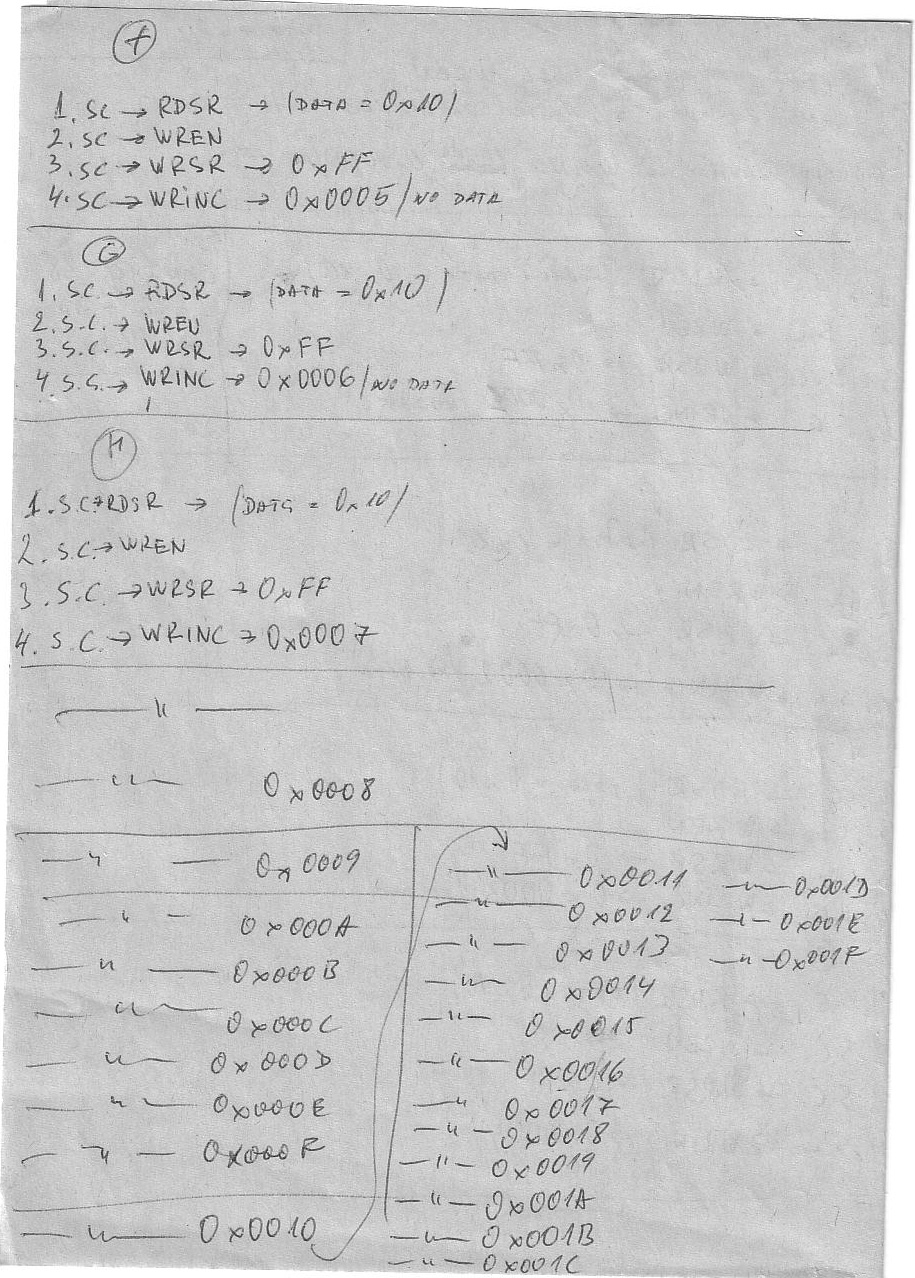 F
1. SC → RDSR → (DATA = 0x10)
2. SC → WREN
3. SC → WRSR → 0xFF
4. SC → WRINC → 0x0005 / NO DATA
G
1. SC. → RDSR → (DATA = 0x10)
2. S.C. → WREN
3. S.C. → WRSR → 0xFF
4 S.S. → WRINC → 0x0006 / NO DATA
H
1. S.C → RDSR → (DATA = 0x10)
2. S.C. → WREN
3. S.C. → WRSR → 0xFF
4. S.C. → WRINC → 0x0007
— " —
— " — 0x0008
— " — 0x0009
— " — 0x000A
— " — 0x000B
— " — 0x000C
— " — 0x000D
— " — 0x000E
— " — 0x000F
— " — 0x0010
— " — 0x0011
— " — 0x0012
— " — 0x0013
— " — 0x0014
— " — 0x0015
— " — 0x0016
— " 0x0017
— " — 0x0018
— " — 0x0019
— " — 0x001A
— " — 0x001B
— " — 0x001C
— " — 0x001D
— " — 0x001E
— " — 0x001F